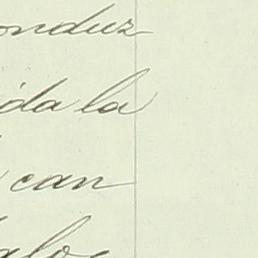 onduz
ida la
can
alo